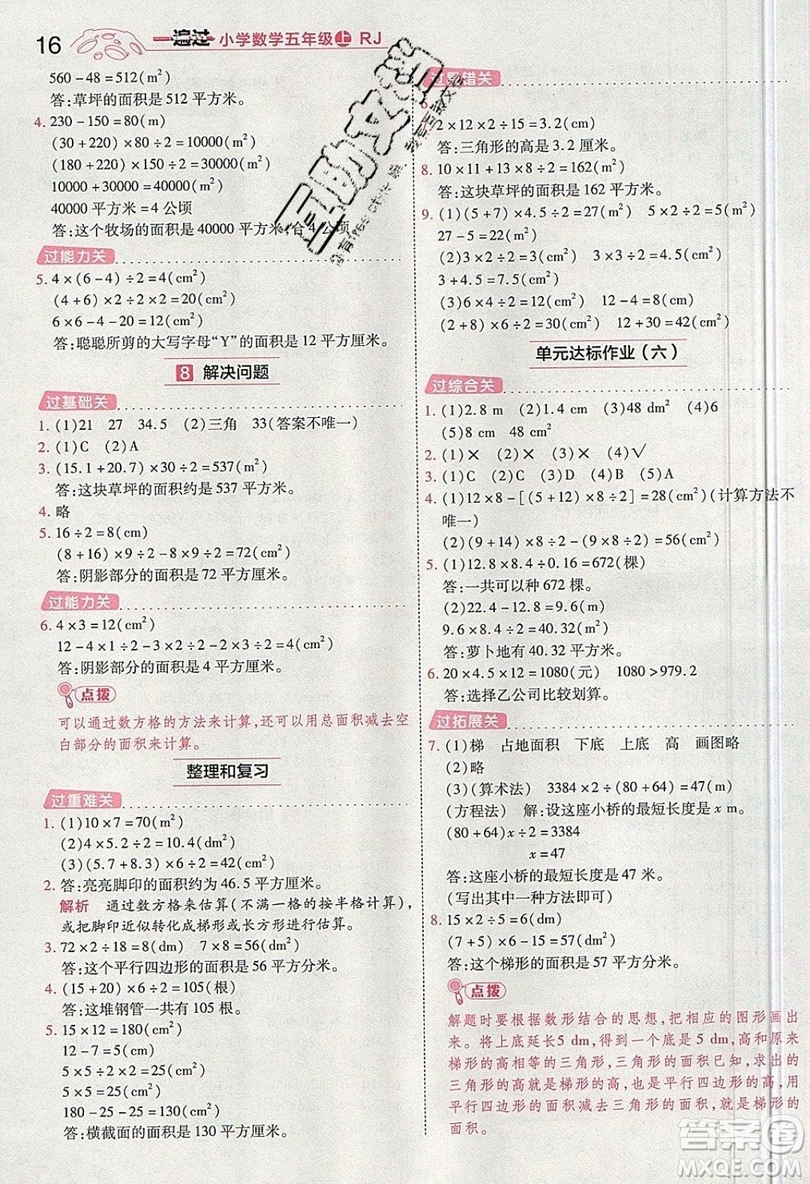 16 一遍过 小学数学五年级上 RJ
560-48=512(m²)
答:草坪的面积是 512 平方米。
4. 230-150=80(m)
(30+220)×80÷2=10000(m²)
(180+220)×150÷2=30000(m²)
10000+30000=40000(m²)
40000 平方米=4 公顷
答:这个牧场的面积是 40000 平方米,合 4 公顷。
过能力关
5. 4×(6-4)÷2=4(cm²)
(4+6)×2×2÷2=20(cm²)
6×6-4-20=12(cm²)
答:聪聪所剪的大写字母“Y”的面积是 12 平方厘米。
8 解决问题
过基础关
1. (1)21 27 34.5 (2)三角 33(答案不唯一)
2. (1)C (2)A
3. (15.1+20.7)×30÷2=537(m²)
答:这块草坪的面积约是 537 平方米。
4. 略
5. 16÷2=8(cm)
(8+16)×8÷2-6×8÷2=72(cm²)
答:阴影部分的面积是 72 平方厘米。
过能力关
6. 4×3=12(cm²)
12-4×1÷2-2×3÷2-3×2÷2=4(cm²)
答:阴影部分的面积是 4 平方厘米。
点拨
可以通过数方格的方法来计算,还可以用总面积减去空
白部分的面积来计算。
整理和复习
过重难关
1. (1)10×7=70(m²)
(2)4×5.2÷2=10.4(dm²)
(3)(5.7+8.3)×6÷2=42(cm²)
2. 答:亮亮脚印的面积约是 46.5 平方厘米。
解析 通过数方格来估算(不满一格的按半格计算),
或把脚印近似转化成梯形或长方形进行估算。
3. 72×2÷18=8(dm) 7×8=56(dm²)
答:这个平行四边形的面积是 56 平方分米。
4. (15+20)×6÷2=105(根)
答:这堆钢管一共有 105 根。
5. 15×12=180(cm²)
12-7=5(cm)
5×5÷2×2=25(cm²)
5×5=25(cm²)
180-25-25=130(cm²)
答:横截面的面积是 130 平方厘米。
过易错关
6.
7. 2×12×2÷15=3.2(cm)
答:三角形的高是 3.2 厘米。
8. 10×11+13×8÷2=162(m²)
答:这块草坪的面积是 162 平方米。
9. (1)(5+7)×4.5÷2=27(cm²) 5×2÷2=5(cm²)
27-5=22(cm²)
(2)3×2÷2=3(cm²) 3×3÷2=4.5(cm²)
3+4.5=7.5(cm²)
(3)(4+6)×2÷2=10(cm²) 12-4=8(cm)
(2+8)×6÷2=30(cm²) 10+30=40(cm²)
单元达标作业(六)
过综合关
1. (1)2.8 m (2)8 (3)67 dm² (4)6
(5)48 cm² 48 cm²
2. (1)× (2)× (3)× (4)√
3. (1)C (2)D (3)A (4)C
4. (1)12×8-[(5+8)×2÷2]=28(cm²)(计算方法不
唯一)
(2)(9+14)×8÷2-(9+14)×2÷2=56(cm²)
5. (1)12.8×8.4÷0.16=672(棵)
答:一共可以种 672 棵。
(2)22.4-12.8=9.6(m)
9.6×8.4÷2=40.32(m²)
答:萝卜地有 40.32 平方米。
6. 20×4.5×12=1080(元) 1080>979.2
答:选择乙公司比较划算。
过拓展关
7. (1)梯 占地面积 下底 上底 高 画图略
(2)略
(3)(算术法) 3384×2÷(80+64)=47(m)
(方程法) 解:设这座小桥的最短长度是 x m。
(80+64)x÷2=3384
x=47
答:这座小桥的最短长度是 47 米。
(写出其中一种方法即可)
8. 15×2÷5=6(dm)
(7+5)×6-15=57(dm²)
答:这个梯形的面积是 57 平方分米。
点拨
解题时要根据数形结合的思想,把相应的图形画出
来。将上底延长5 dm,可得到一个底是5 dm,高和原来
梯形的高相等的三角形,三角形的面积已知,求出的
三角形的高就是梯形的高,也是平行四边形的高,用
平行四边形的面积减去三角形的面积,就是梯形的
面积。
互助文档
答案圈
MXQE.COM